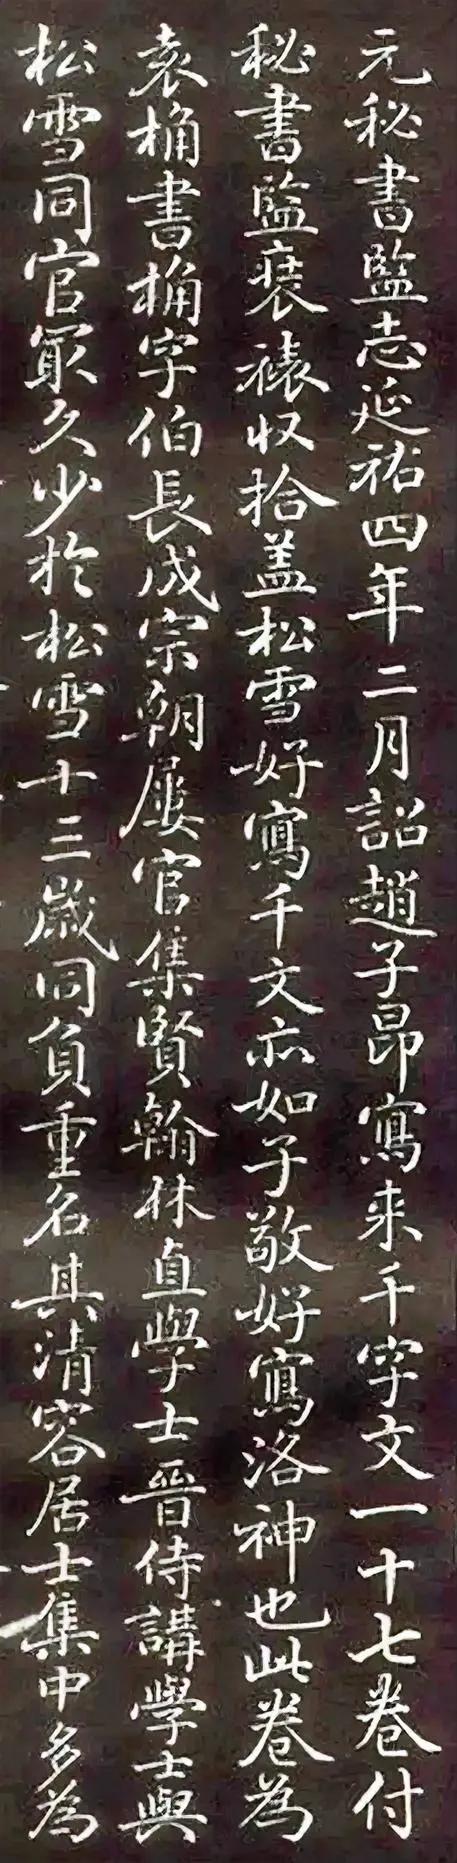 元秘書監志延祐四年二月詔趙子昂寫来千字文一十七卷付
秘書監裴裱収拾盖松雪好寫千文亦如子敬好寫洛神也此卷為
袁桷書桷字伯長成宗朝屢官集賢翰林直學士晉侍講學士與
松雪同官冣久少於松雪十三歲同負重名其清容居士集中多為